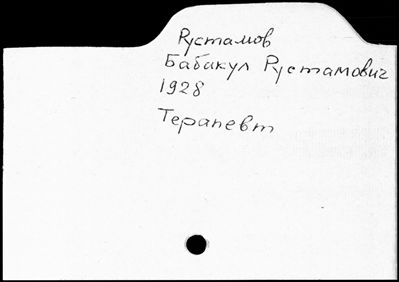 Рустамов
Бабакул Рустамович
1928
Терапевт